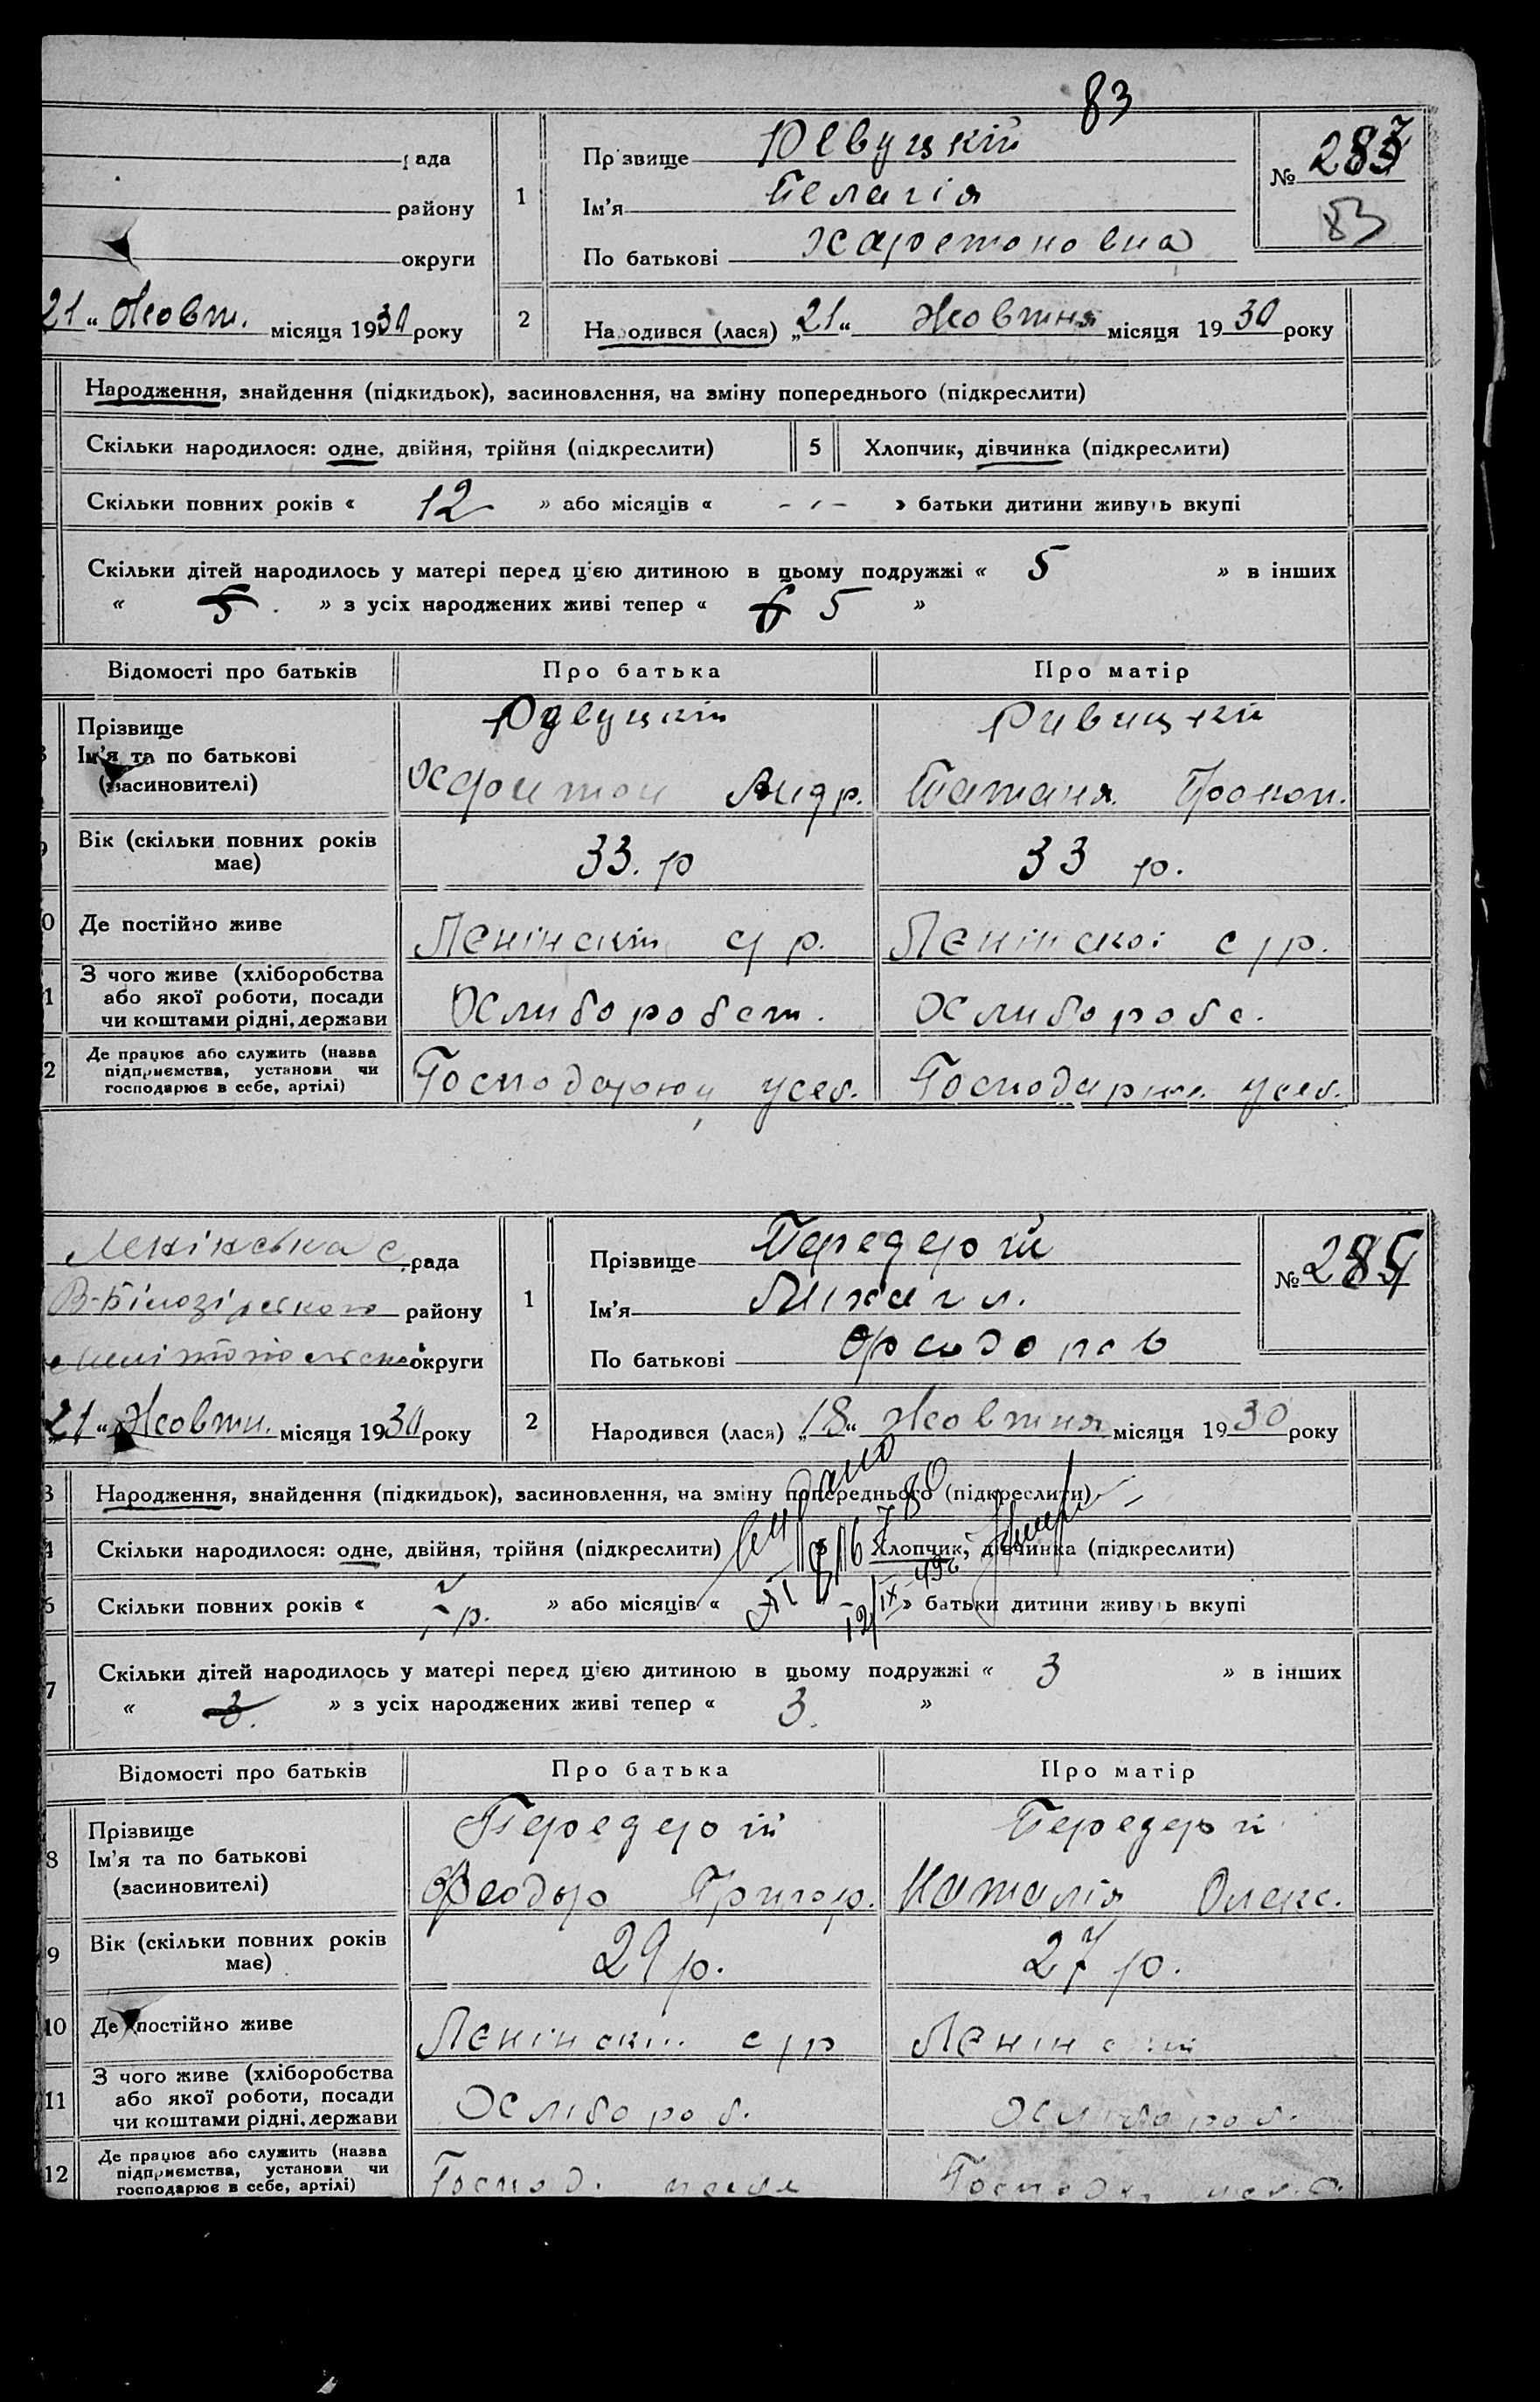 83
рада
району
округи
21 „ Жовт. місяця 1930 року
1
Прізвище
Ім'я Пелагія
По батькові Харетоновна
№ 283
83
2
Народився (лася) „21“ Жовтня місяця 1930 року
Народження, знайдення (підкидьок), засиновлення, на зміну попереднього (підкреслити)
Скільки народилося: одне, двійня, трійня (підкреслити) 5 Хлопчик, дівчинка (підкреслити)
Скільки повних років « 12 » або місяців « - - - » батьки дитини живуть вкупі
Скільки дітей народилось у матері перед цією дитиною в цьому подружжі « 5 » в інших
« 5 » з усіх народжених живі тепер « 6 5 »
Відомості про батьків Про батька Про матір
Прізвище
Ім'я та по батькові
(засиновителі)
Харитон Андр. Татаня Прокоп.
Вік (скільки повних років має) 33. р 33 р.
0 Де постійно живе Ленінскій с р. Ленінскоі с р.
1 З чого живе (хліборобства або якої роботи, посади чи коштами рідні, держави Хлиборобст. Хлибороб.
2 Де працює або служить (назва підприємства, установи чи господарює в себе, артілі) Господарює усеб. Господарює усеб.
Ленінська с. рада
В-Білозірського району
Мелітопольськ. округи
„21“ Жовтн. місяця 1930 року
1
Прізвище Передерій
Ім'я Михаил.
По батькові Феодоров
№ 285
2
Народився (лася) „18“ Жовтня місяця 1930 року
3 Народження, знайдення (підкидьок), засиновлення, на зміну попереднього (підкреслити)
4 Скільки народилося: одне, двійня, трійня (підкреслити) 5 Хлопчик, дівчинка (підкреслити)
6 Скільки повних років « р. » або місяців « » батьки дитини живуть вкупі
7 Скільки дітей народилось у матері перед цією дитиною в цьому подружжі « 3 » в інших
« 3. » з усіх народжених живі тепер « 3. »
Відомості про батьків Про батька Про матір
8 Прізвище
Ім'я та по батькові
(засиновителі)
Передерій Передерій
Феодор Григор. Наталія Олекс.
9 Вік (скільки повних років має) 29 р. 27 р.
10 Де постійно живе Ленінскій с р Ленінскій
11 З чого живе (хліборобства або якої роботи, посади чи коштами рідні, держави Хлібороб. Хлібороб.
12 Де працює або служить (назва підприємства, установи чи господарює в себе, артілі) Господ.